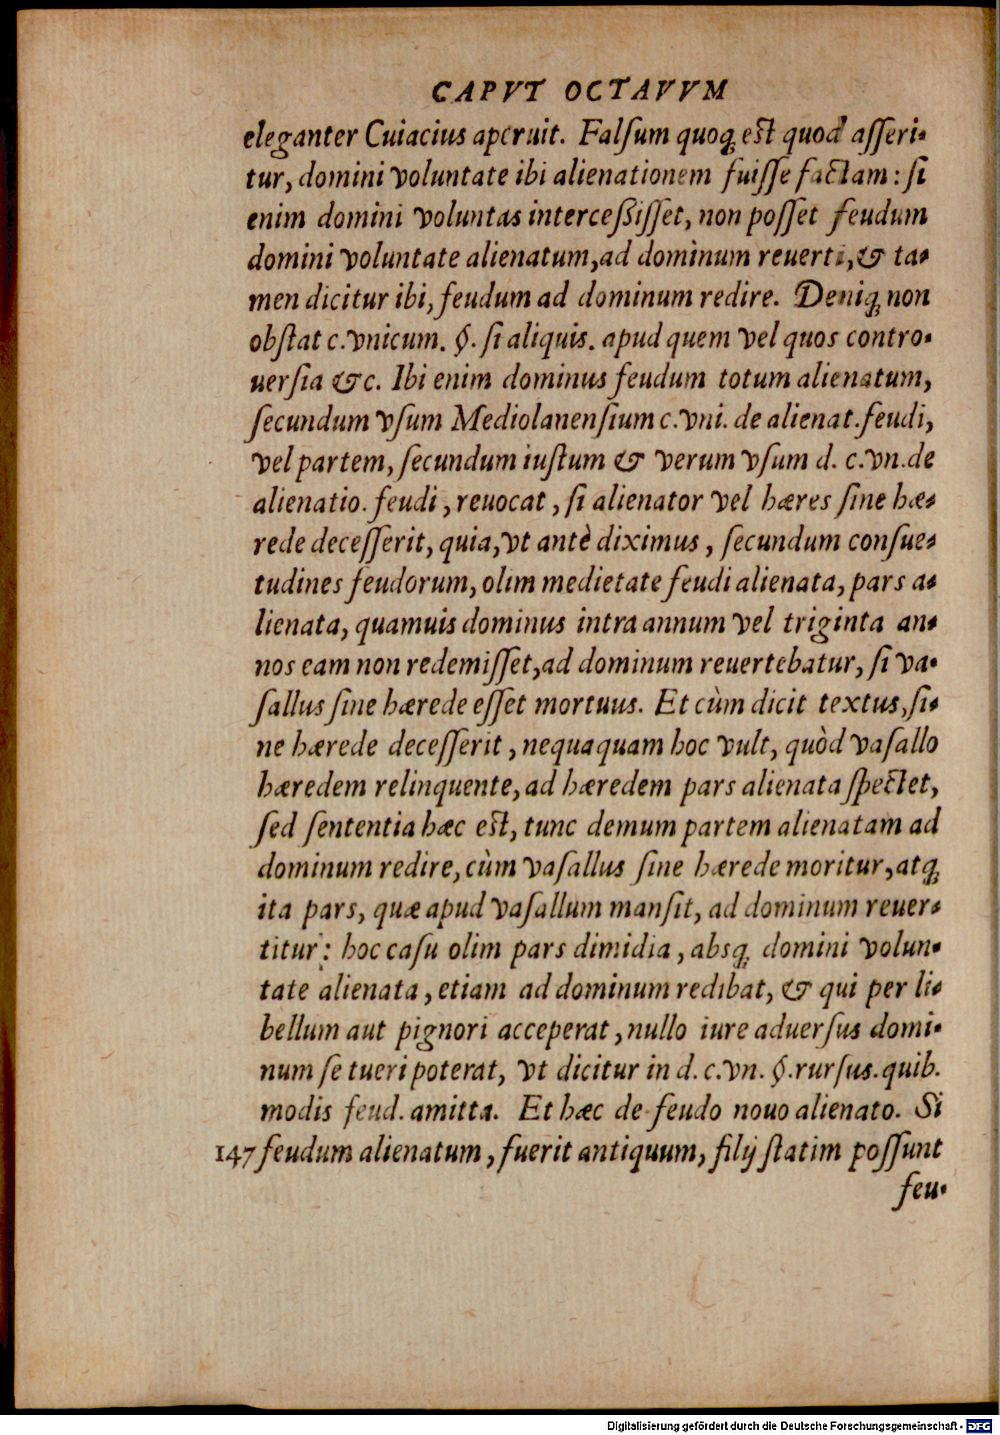 CAPVT OCTAVVM
eleganter Cuiacius aperuit. Falſum quoq; eſt quod aſſeri-
tur, domini voluntate ibi alienationem fuiſſe factam: ſi
enim domini voluntas interceßiſſet, non poſſet feudum
domini voluntate alienatum, ad dominum reuerti, & ta-
men dicitur ibi, feudum ad dominum redire. Deniq; non
obſtat c. vnicum. §. ſi aliquis. apud quem vel quos contro-
uerſia &c. Ibi enim dominus feudum totum alienatum,
ſecundum vſum Mediolanenſium c. vni. de alienat. feudi,
vel partem, ſecundum iuſtum & verum vſum d. c. vn. de
alienatio. feudi, reuocat, ſi alienator vel hæres ſine hæ-
rede deceſſerit, quia, vt antè diximus, ſecundum conſue-
tudines feudorum, olim medietate feudi alienata, pars a-
lienata, quamuis dominus intra annum vel triginta an-
nos eam non redemiſſet, ad dominum reuertebatur, ſi va-
ſallus ſine hærede eſſet mortuus. Et cùm dicit textus, ſi-
ne hærede deceſſerit, nequaquam hoc vult, quòd vaſallo
hæredem relinquente, ad hæredem pars alienata ſpectet,
ſed ſententia hæc eſt, tunc demum partem alienatam ad
dominum redire, cùm vaſallus ſine hærede moritur, atq;
ita pars, quæ apud vaſallum manſit, ad dominum reuer-
titur: hoc caſu olim pars dimidia, absq; domini volun-
tate alienata, etiam ad dominum redibat, & qui per li-
bellum aut pignori acceperat, nullo iure aduerſus domi-
num ſe tueri poterat, vt dicitur in d. c. vn. §. rurſus. quib.
modis feud. amitta. Et hæc de feudo nouo alienato. Si
147 feudum alienatum, fuerit antiquum, filij ſtatim poſſunt
feu-
Digitalisierung gefördert durch die Deutsche Forschungsgemeinschaft - DFG